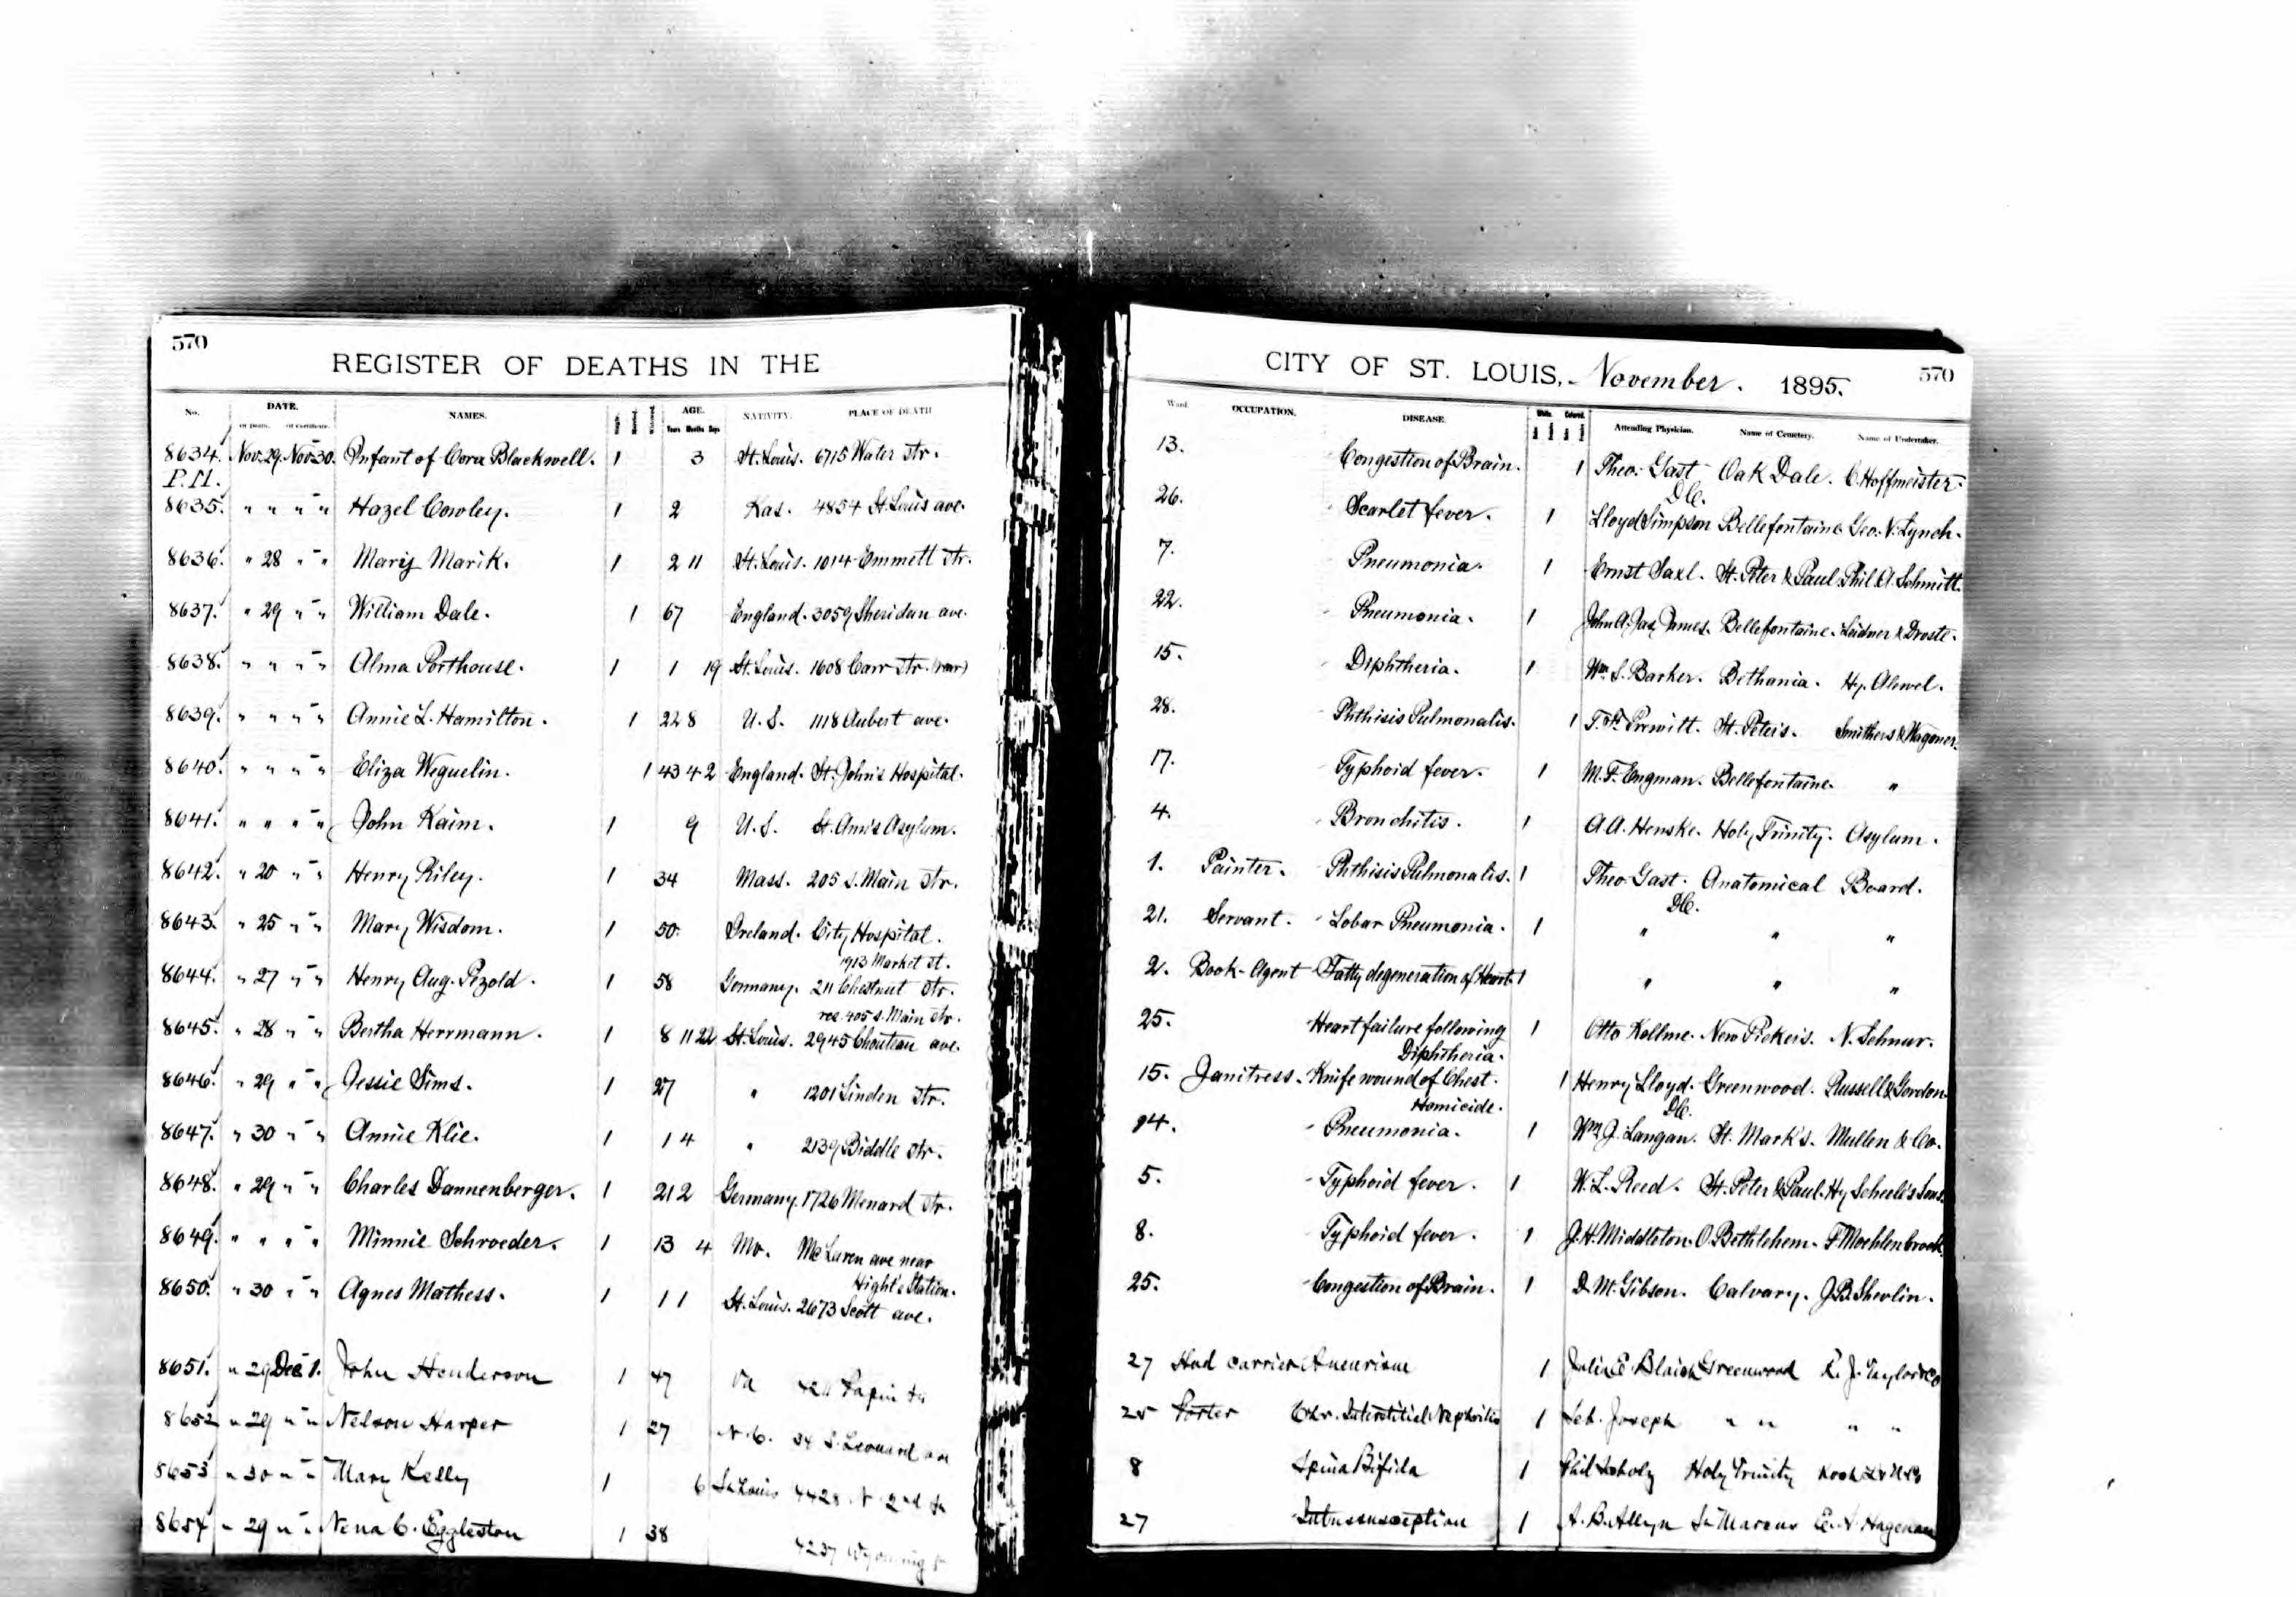 570
REGISTER OF DEATHS IN THE
No. DATE. NAMES. AGE. NATIVITY. PLACE OF DEATH
Of Death. Of Certificate. Single Married Widowed Years Months Days
8634. Nov. 29. Nov 30. Infant of Cora Blackwell. 1 3 St. Louis. 6715 Water Str.
P.M.
8635. " " " " Hazel Cowley. 1 2 Kas. 4854 St. Louis ave.
8636. " 28 " " Mary Marik. 1 2 11 St. Louis. 1014 Emmett Str.
8637. " 29 " " William Dale. 1 67 England. 3059 Sheridan ave.
8638. " " " " Alma Porthouse. 1 1 19 St. Louis. 1608 Carr Str. (rear)
8639. " " " " Annie L. Hamilton. 1 22 8 U.S. 1118 Aubert ave.
8640. " " " " Eliza Weguelin. 1 43 4 2 England. St. John's Hospital.
8641. " " " " John Kaim. 1 9 U.S. St. Ann's Asylum.
8642. " 20 " " Henry Riley. 1 34 Mass. 205 S. Main Str.
8643. " 25 " " Mary Wisdom. 1 50. Ireland. City Hospital.
1913 Market St.
8644. " 27 " " Henry Aug. Pezold. 1 58 Germany. 211 Chestnut Str.
res. 405 S. Main Str.
8645. " 28 " " Bertha Herrmann. 1 8 11 22 St. Louis. 2945 Chouteau ave.
8646. " 29 " " Jessie Sims. 1 27 " 1201 Linden Str.
8647. " 30 " " Annie Klie. 1 1 4 " 2139 Biddle Str.
8648. " 29 " " Charles Dannenberger. 1 21 2 Germany. 1726 Menard Str.
8649. " " " " Minnie Schroeder. 1 13 4 Mo. McLaren ave near
Hight's Station.
8650. " 30 " " Agnes Mathess. 1 1 1 St. Louis. 2673 Scott ave.
8651. " 29 Dec 1. John Henderson 1 47 Va 4211 Papin St
8652 " 29 " " Nelson Harper 1 27 N.C. 34 S. Leonard av
8653 " 30 " " Mary Kelly 1 6 St Louis 4428 N 2nd St
8654 " 29 " " Nena C. Eggleston 1 38 4237 Wyoming St
CITY OF ST. LOUIS, November. 1895. 570
Ward. OCCUPATION. DISEASE. White. Colored. Attending Physician. Name of Cemetery. Name of Undertaker.
13. Congestion of Brain. 1 Theo. Gast Oak Dale. C Hoffmeister.
DC.
26. Scarlet fever. 1 Lloyd Simpson Bellefontaine Geo. N. Lynch.
7. Pneumonia. 1 Ernst Saxl. St. Peter & Paul Phil. A. Schmitt.
22. Pneumonia. 1 John A. Jas. James. Bellefontaine. Leidner & Droste.
15. Diphtheria. 1 Wm. S. Barker. Bethania. Hy. Alewel.
28. Phthisis Pulmonalis. 1 T. F. Prewitt. St. Peter's. Smithers & Wagoner.
17. Typhoid fever. 1 M. F. Engman. Bellefontaine. "
4. Bronchitis. 1 A.A. Henske. Holy Trinity. Asylum.
1. Painter. Phthisis Pulmonalis. 1 Theo. Gast. Anatomical Board.
DC.
21. Servant. Lobar Pneumonia. 1 " " "
2. Book-Agent Fatty degeneration of Heart 1 " " "
25. Heart failure following 1 Otto Kollme. New Picker's. N. Schnur.
Diphtheria.
15. Janitress. Knife wound of Chest. 1 Henry Lloyd. Greenwood. Russell & Gordon.
Homicide. DC.
14. Pneumonia. 1 Wm. J. Langan. St. Mark's. Mullen & Co.
5. Typhoid fever. 1 W. L. Reed. St. Peter & Paul. Hy Scheele's Sons.
8. Typhoid fever. 1 J. H. Middleton. O. Bethlehem. F Moehlenbrock.
25. Congestion of Brain. 1 D. M. Gibson. Calvary. J. B. Shevlin.
27 Hod carrier Aneurism 1 Julia E Blaich Greenwood R. J. Taylor & Co
25 Porter Chr. Interstitial Nephritis 1 Seb. Joseph " " " "
8 Spina Bifida 1 Phil Holy Trinity
27 Intussusception 1 A. B. Allyn St Marcus E. A. Hageman